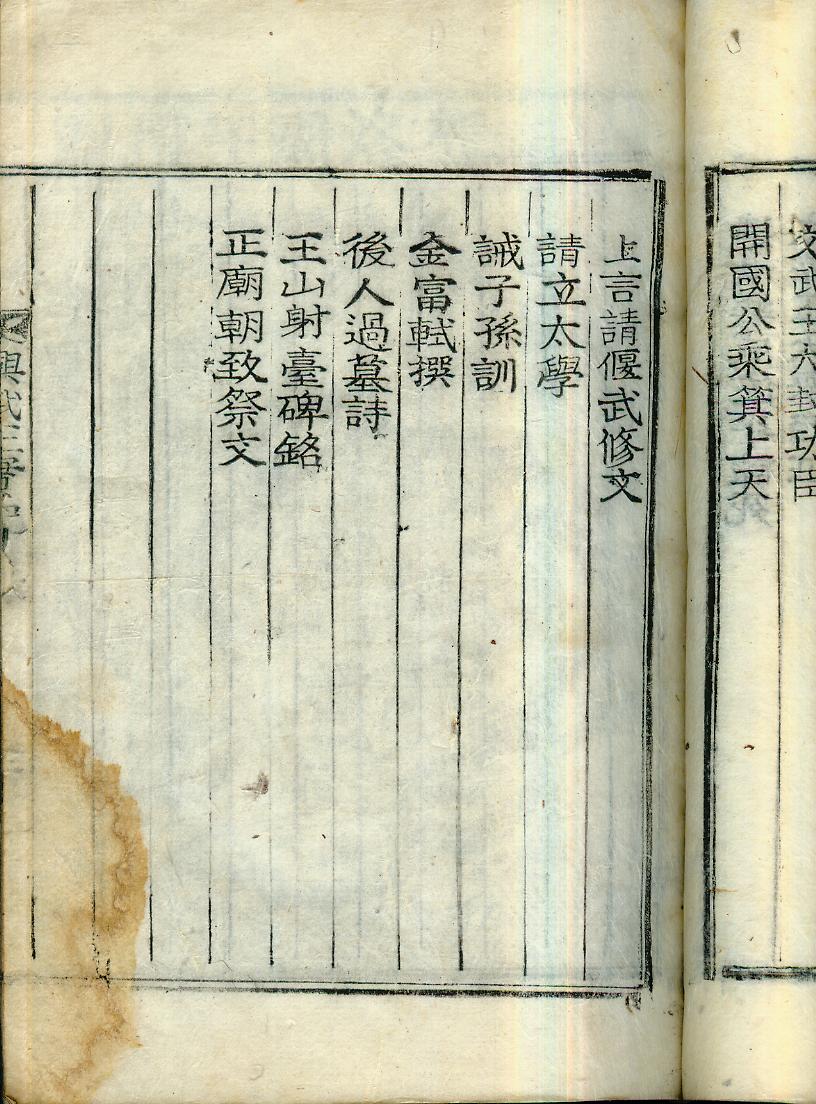 文武王大封功臣
開國公乘箕上天
上言請偃武修文
請立太學
誡子孫訓
金富軾撰
後人過墓詩
王山射臺碑銘
正廟朝致祭文
興武王實記